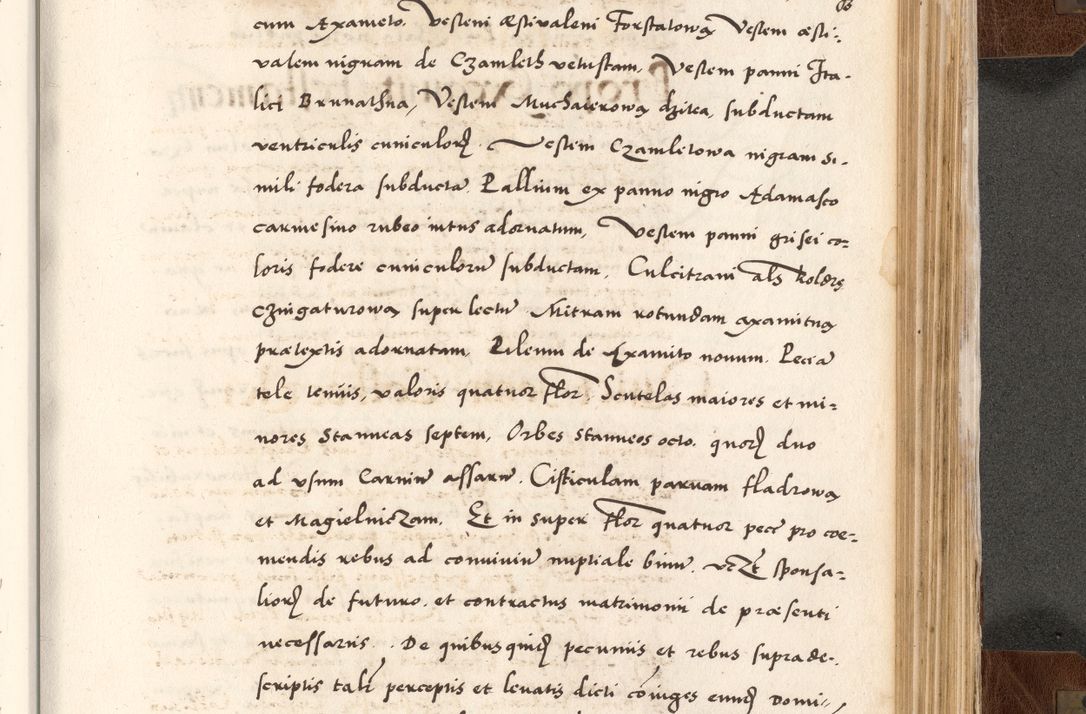 cum Axameto, Vestem æstivalem Forstatową Vestem æsti-
valem nigram de Czamleth vetustam, Vestem panni Ita-
lici Brunathna, Vestem Muchaierową dzitea, subductam
ventriculis cuniculorꝝ. Vestem Czamletowa nigram si-
mili fodera subducta. Pallium ex panno nigro Adamasco
carmesino rubeo intus adornatum, Vestem panni grisei co-
loris fodere cuniculorū subductam. Culcitram als kołdrę
czingaturową super lectū. Mitram rotundam axamitną
prætextis adornatam. Pileum de Axamito nouum. Peciā
tele tenuis, valoris quatuor flor. Scutelas maiores et mi-
nores stanneas septem, Orbes stanneos octo, quorꝝ duo
ad vsum Carniū assarū. Cisticulam paruam fladrową
et Magielniczam. Et in super flor quatuor pecē pro coe-
mendis rebus ad conuiuiū nuptiale binū, vczt sponsa-
liorꝝ de futuro, et contractus matrimonii de præsenti
necessariis. De quibus quidꝫ pecuniis et rebus suprade-
scriptis tali perceptis et leuatis dicti cōiuges eundꝫ Domi-